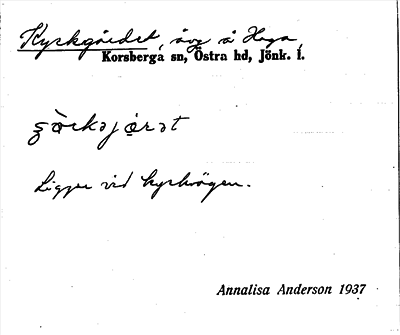 Kyrkgärdet, äng å Haga,
Korsberga sn, Östra hd, Jönk. l.
Ligger vid kyrkvägen.
Annalisa Anderson 1937